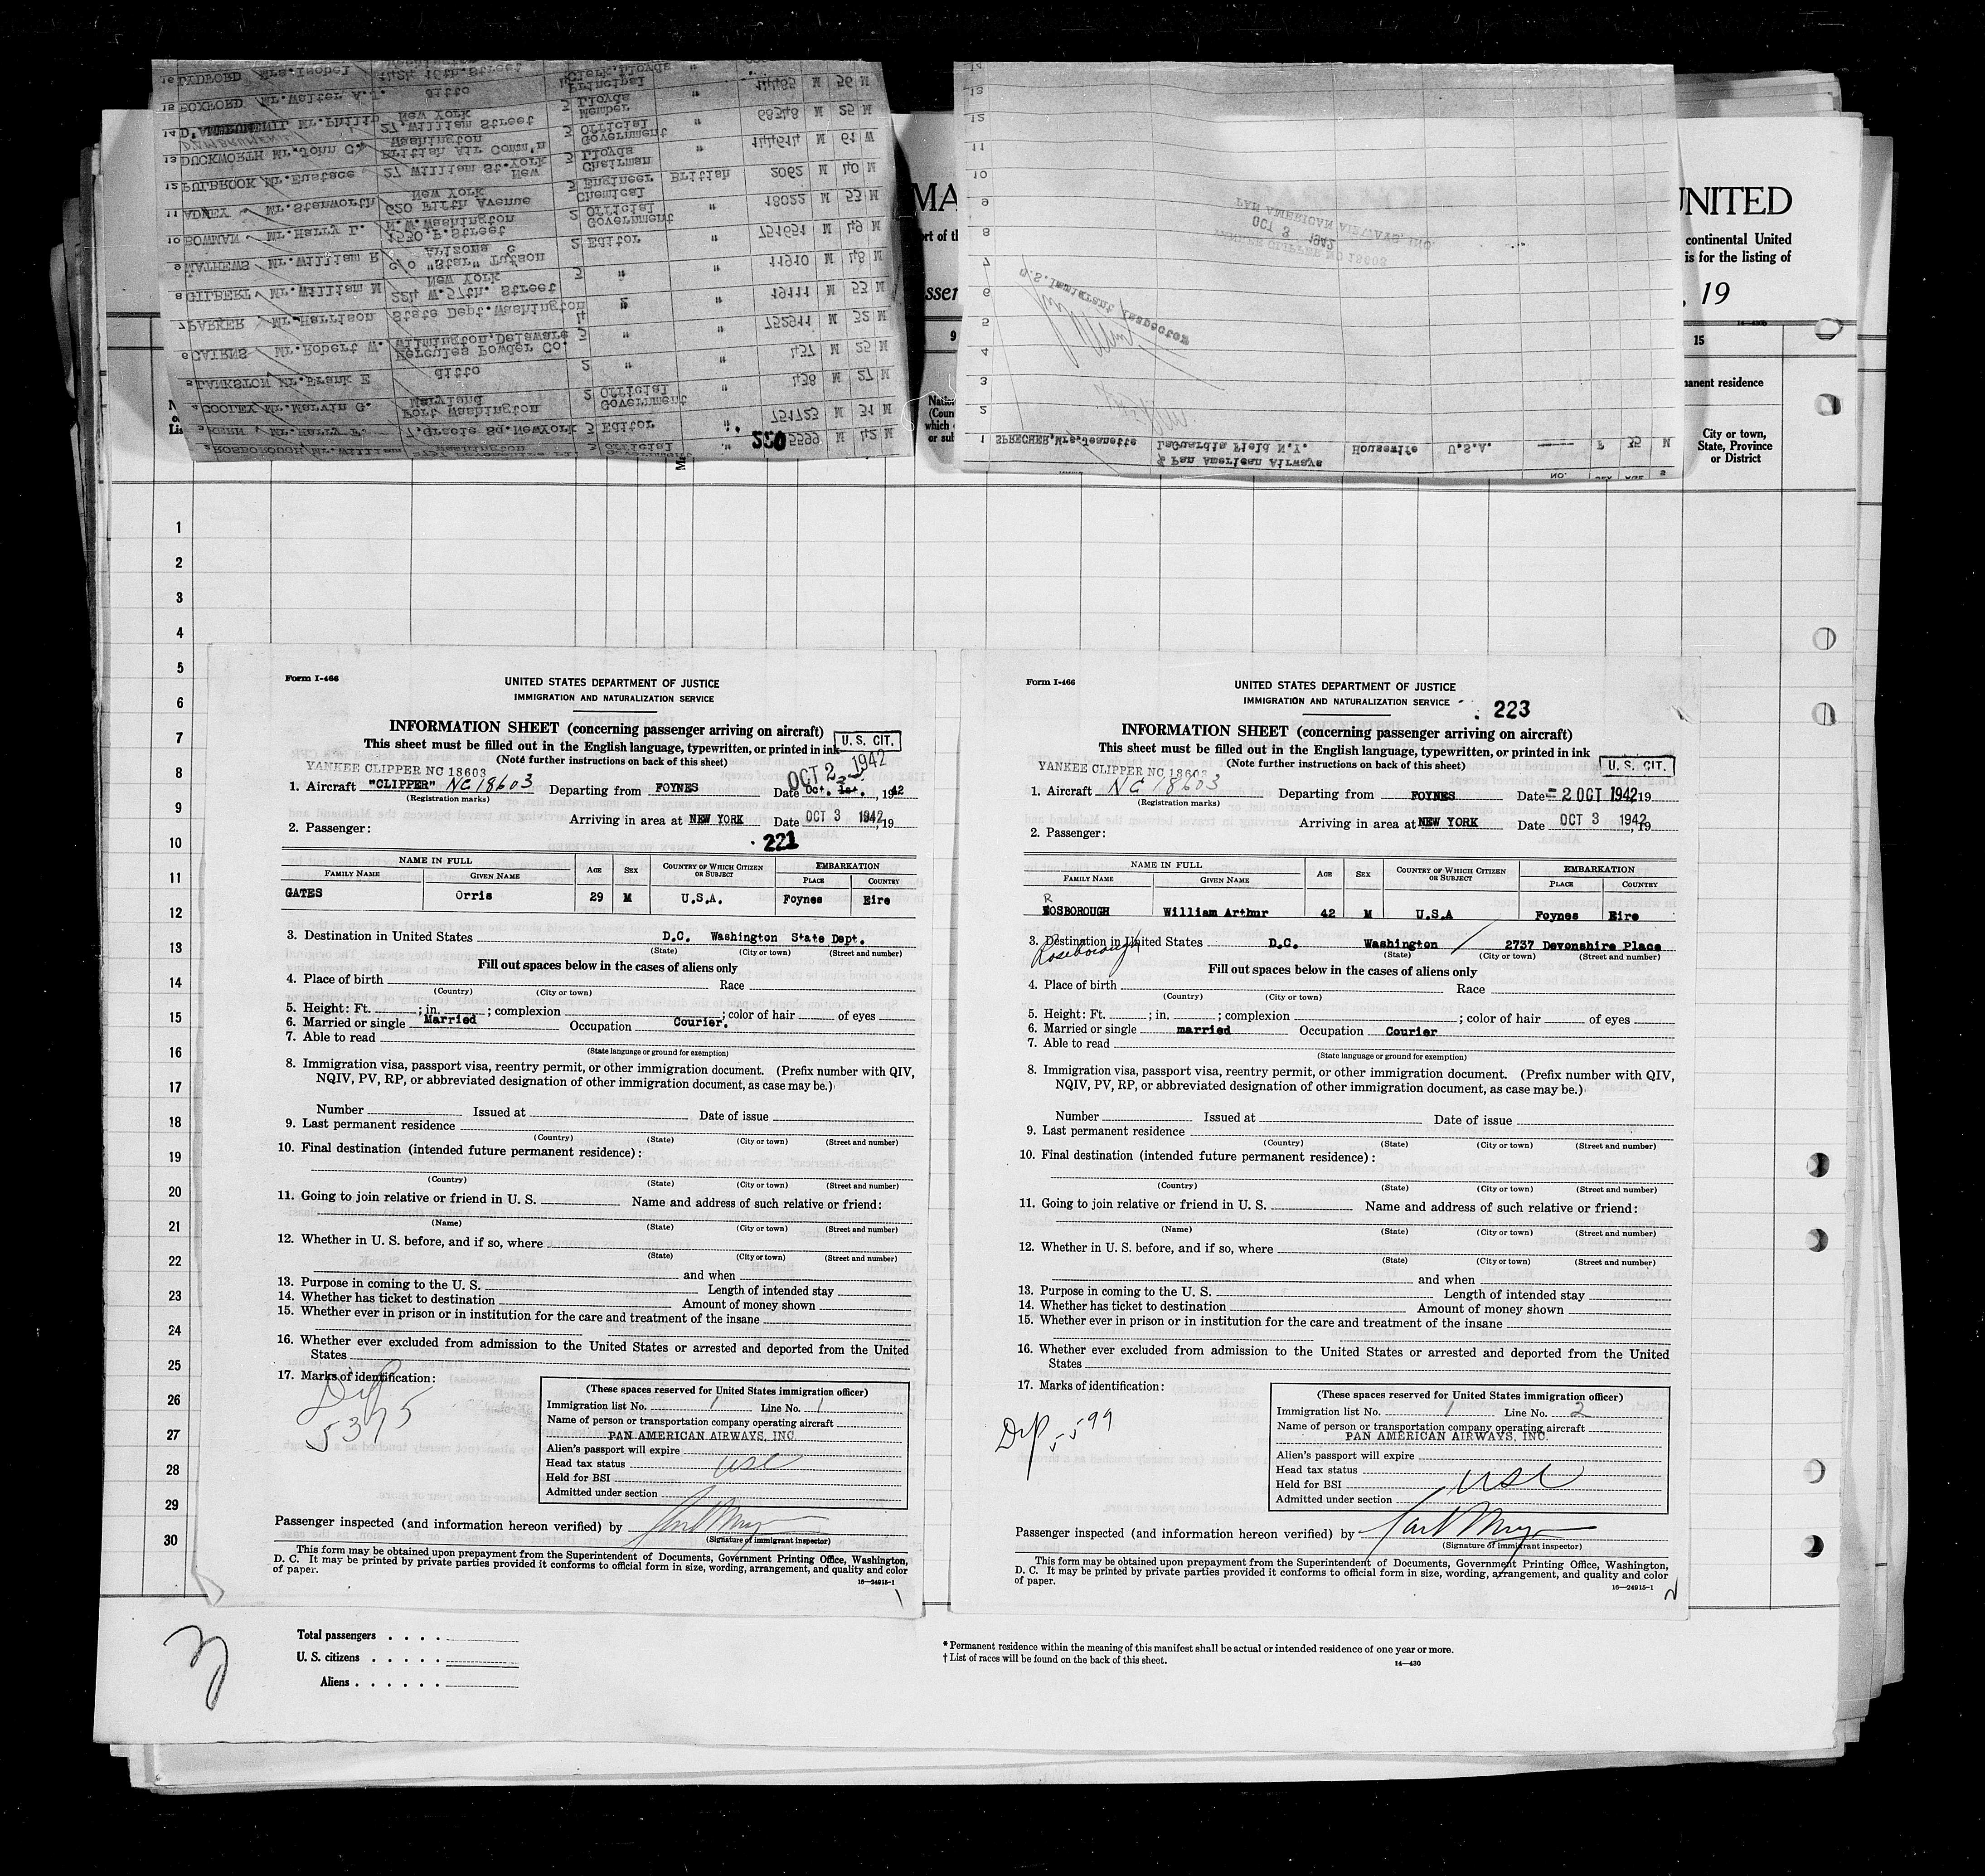 16 LYDFORD Mrs. Isobel 1424 16th. Street Clerk. Lloyds "
15 BOXFORD Mr. Walter A.J. ditto Principal " 14485 M 56 M
14 D'AMBRUMENIL Mr. Philip 27. William Street New York 3 Lloyds Member " 68348 M 25 M
13 DUCKWORTH Mr. John C. British Air Comm'n Washington 3 Government Official " 144614 M 61 W
12 PULBROOK Mr. Eustace 27 William St. New York 3 Chairman Lloyds British 2062 M 40 M
11 ADNEY Mr. Stenworth 620 Fifth Avenue New York 3 Chemical Engineer " 18022 M 53 M
10 BOWMAN Mr. Harry L. 1530 P. Street N.W. Washington 2 Government Official " 751651 M 49 M
9 MATHEWS Mr. William R c/o "Star" Tucson Arizona 2 Editor " 11910 M 48 M
8 GILBERT Mr. William M 224 W. 57th. Street New York 3 " " 19111 M 53 M
7 PARKER Mr. Harrison State Dept. Washington 4 " " 752911 M 32 M
6 CAIRNS Mr. Robert W. Hercules Powder Co. Wilmington, Delaware 3 " 437 M 25 M
5 LANKSTON Mr. Frank E ditto 2 " " 438 M 27 M
4 COOLEY, Mr. Marvin G. Fort Washington Maryland 2 Government Official " 751723 M 31 M
3 KERN Mr. Harry F. 7, Gracie Sq. NewYork 3 Editor "
2 ROSBOROUGH, Mr. William Washington 3 Government Official " 5599 M 42 M
250
14
13
12
11
10
9
8
7
6
5
4
3
2
PAN AMERICAN AIRWAYS, INC.
OCT 3 1942
YANKEE CLIPPER NC 18603
U.S. Immigrant Inspector
1 SPRECHER, Mrs. Jeanette % Pan American Airways LaGuardia Field N.Y. Housewife U.S.A. F 35 M
NO. SEX AGE
MA
UNITED
ort of th
continental United
is for the listing of
ssen
, 19
9
15
manent residence
City or town,
State, Province
or District
1
2
3
4
5
6
7
8
9
10
11
12
13
14
15
16
17
18
19
20
21
22
23
24
25
26
27
28
29
30
Form I-466
UNITED STATES DEPARTMENT OF JUSTICE
IMMIGRATION AND NATURALIZATION SERVICE
INFORMATION SHEET (concerning passenger arriving on aircraft)
U. S. CIT.
This sheet must be filled out in the English language, typewritten, or printed in ink
(Note further instructions on back of this sheet)
YANKEE CLIPPER NC 18603
OCT 2 1942
1. Aircraft "CLIPPER" NC 18603 Departing from FOYNES Date Oct. 1st. , 1942
(Registration marks)
Arriving in area at NEW YORK Date OCT 3 1942, 19
2. Passenger:
221
NAME IN FULL AGE SEX COUNTRY OF WHICH CITIZEN OR SUBJECT EMBARKATION
FAMILY NAME GIVEN NAME PLACE COUNTRY
GATES Orris 29 M U.S.A. Foynes Eire
3. Destination in United States D.C. Washington State Dept.
(State) (City or town) (Street and number)
Fill out spaces below in the cases of aliens only
4. Place of birth Race
(Country) (City or town)
5. Height: Ft. ; in. ; complexion ; color of hair of eyes
6. Married or single Married Occupation Courier.
7. Able to read
(State language or ground for exemption)
8. Immigration visa, passport visa, reentry permit, or other immigration document. (Prefix number with QIV,
NQIV, PV, RP, or abbreviated designation of other immigration document, as case may be.)
Number Issued at Date of issue
9. Last permanent residence
(Country) (State) (City or town) (Street and number)
10. Final destination (intended future permanent residence):
(Country) (State) (City or town) (Street and number)
11. Going to join relative or friend in U. S. Name and address of such relative or friend:
(Name) (State) (City or town) (Street and number)
12. Whether in U. S. before, and if so, where
(State) (City or town) (Street and number)
and when
13. Purpose in coming to the U. S. Length of intended stay
14. Whether has ticket to destination Amount of money shown
15. Whether ever in prison or in institution for the care and treatment of the insane
16. Whether ever excluded from admission to the United States or arrested and deported from the United
States
17. Marks of identification:
Dip
5375
(These spaces reserved for United States immigration officer)
Immigration list No. 1 Line No. 1
Name of person or transportation company operating aircraft
PAN AMERICAN AIRWAYS, INC.
Alien's passport will expire
Head tax status usc
Held for BSI
Admitted under section
Passenger inspected (and information hereon verified) by
(Signature of immigrant inspector)
This form may be obtained upon prepayment from the Superintendent of Documents, Government Printing Office, Washington,
D. C. It may be printed by private parties provided it conforms to official form in size, wording, arrangement, and quality and color
of paper.
16—24915-1
1
Form I-466
UNITED STATES DEPARTMENT OF JUSTICE
IMMIGRATION AND NATURALIZATION SERVICE
223
INFORMATION SHEET (concerning passenger arriving on aircraft)
This sheet must be filled out in the English language, typewritten, or printed in ink
(Note further instructions on back of this sheet)
U. S. CIT.
YANKEE CLIPPER NC 18603
1. Aircraft NC 18603 Departing from FOYNES Date - 2 OCT 1942 19
(Registration marks)
Arriving in area at NEW YORK Date OCT 3 1942, 19
2. Passenger:
NAME IN FULL AGE SEX COUNTRY OF WHICH CITIZEN OR SUBJECT EMBARKATION
FAMILY NAME GIVEN NAME PLACE COUNTRY
R
ROSBOROUGH William Arthur 42 M U.S.A Foynes Eire
3. Destination in United States D.C. Washington / 2737 Devonshire Place
Roseborough
(State) (City or town) (Street and number)
Fill out spaces below in the cases of aliens only
4. Place of birth Race
(Country) (City or town)
5. Height: Ft. ; in. ; complexion ; color of hair of eyes
6. Married or single married Occupation Courier
7. Able to read
(State language or ground for exemption)
8. Immigration visa, passport visa, reentry permit, or other immigration document. (Prefix number with QIV,
NQIV, PV, RP, or abbreviated designation of other immigration document, as case may be.)
Number Issued at Date of issue
9. Last permanent residence
(Country) (State) (City or town) (Street and number)
10. Final destination (intended future permanent residence):
(Country) (State) (City or town) (Street and number)
11. Going to join relative or friend in U. S. Name and address of such relative or friend:
(Name) (State) (City or town) (Street and number)
12. Whether in U. S. before, and if so, where
(State) (City or town) (Street and number)
and when
13. Purpose in coming to the U. S. Length of intended stay
14. Whether has ticket to destination Amount of money shown
15. Whether ever in prison or in institution for the care and treatment of the insane
16. Whether ever excluded from admission to the United States or arrested and deported from the United
States
17. Marks of identification:
Dip 5599
(These spaces reserved for United States immigration officer)
Immigration list No. 1 Line No. 2
Name of person or transportation company operating aircraft
PAN AMERICAN AIRWAYS, INC.
Alien's passport will expire
Head tax status
Held for BSI usc
Admitted under section
Passenger inspected (and information hereon verified) by
(Signature of immigrant inspector)
This form may be obtained upon prepayment from the Superintendent of Documents, Government Printing Office, Washington,
D. C. It may be printed by private parties provided it conforms to official form in size, wording, arrangement, and quality and color
of paper.
16—24915-1
2
Total passengers . . . .
U. S. citizens . . . . .
Aliens . . . . . .
* Permanent residence within the meaning of this manifest shall be actual or intended residence of one year or more.
† List of races will be found on the back of this sheet.
14—430